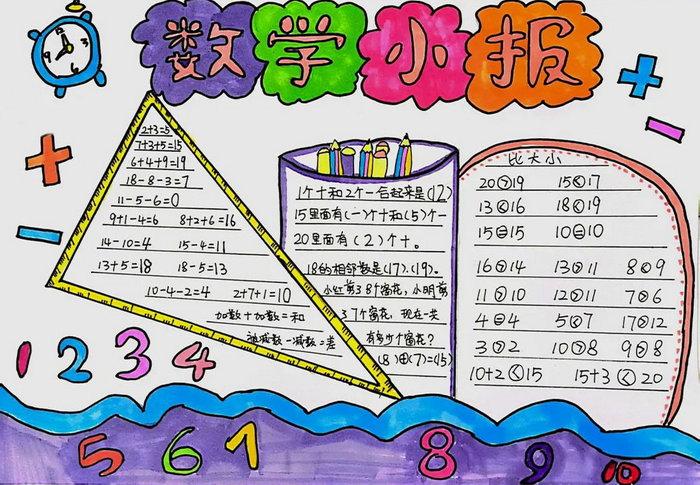 数学小报
2+3=5
7+3+5=15
6+4+9=19
18-8-3=7
11-5-6=0
9+1-4=6 8+2+6=16
14-10=4 15-4=11
13+5=18 18-5=13
10-4-2=4 2+7+1=10
加数+加数=和
被减数-减数=差
1个十和2个一合起来是(12)
15里面有(一)个十和(5)个一
20里面有(2)个十。
18的相邻数是(17)、(19)。
小红剪38个窗花,小明剪
37个窗花,现在一共
有多少个窗花?
(8)+(7)=(15)
比大小
20>19 15<17
13<16 18<19
15=15 10=10
16>14 13>11 8<9
11>10 12>11 7>6
4=4 5<7 17>12
3>2 10>8 9>8
10+2<15 15+3<20
1 2 3 4
5 6 7 8 9 10